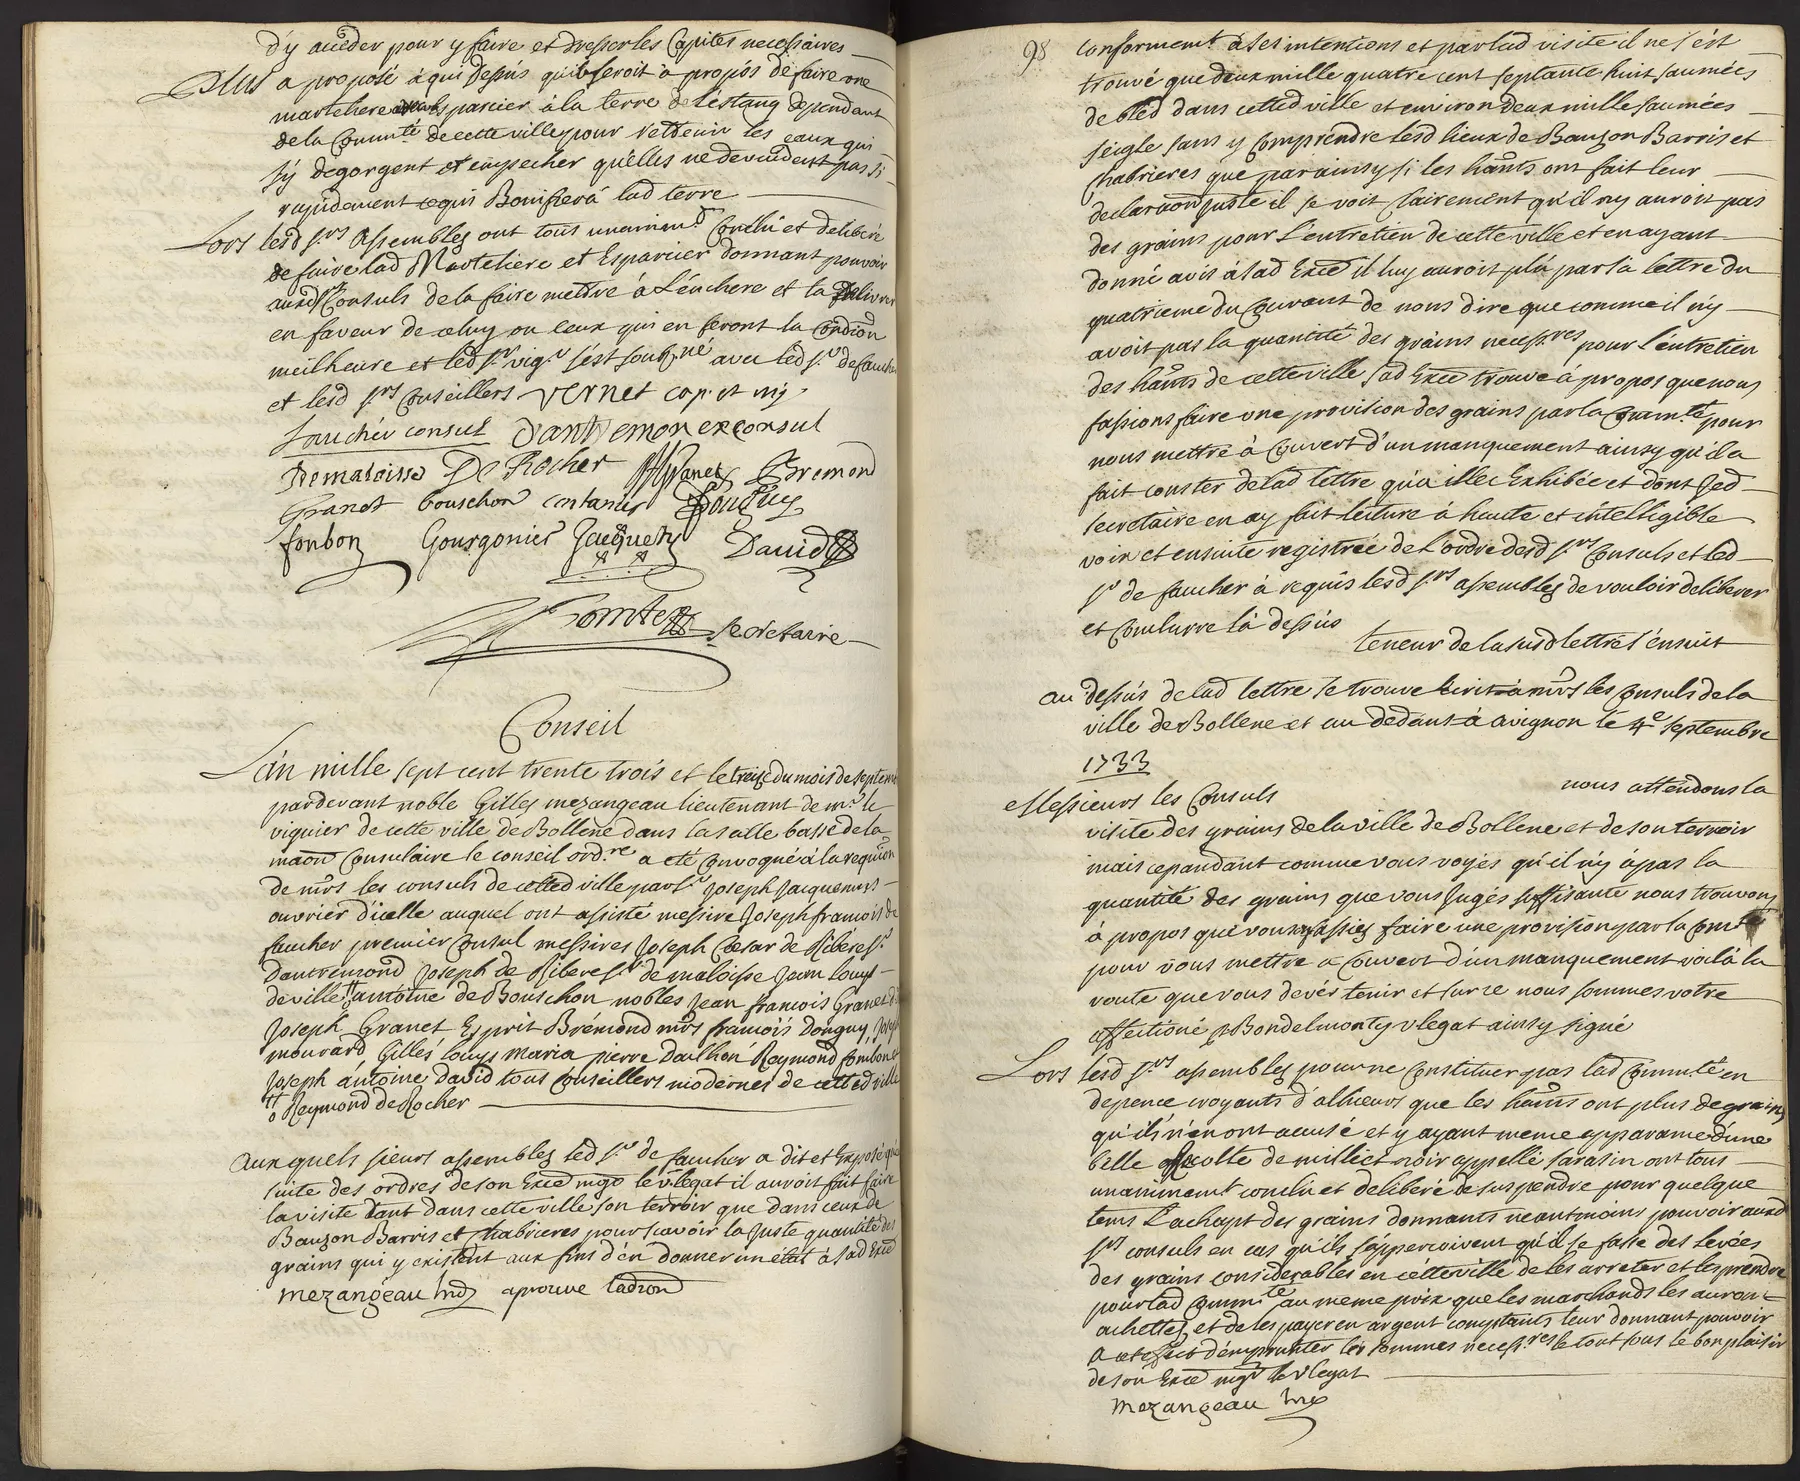 d'y acceder pour y faire et dresser les Capites necessaires
Plus a proposé à qui dessus qu'il seroit à propos de faire une
marteliere et esparcier à la terre de l'éstang dependant
de la Commté de cette ville pour retenir les eaux qui
s'y degorgent et empecher qu'elles ne devuident pas si
rapidement ce qui Bonifiera lad terre
Lors lesd srs assemblés ont tous unanimt Conclu et deliberé
de faire lad Marteliere et Esparcier donnant pouvoir
auxd srs Consuls de la faire mettre à l'énchere et la delivrer
en faveur de celuy ou ceux qui en feront la Condiõn
meilheure et led sr vigr s'est soubzné avec led sr de faucher
et lesd srs Conseillers vernet cap. et vig
faucher consul d'antremon exconsul
Demaloisse De Rocher Granet Bremond
Granet bouschon Donguy
fonbon Gourgonier Jacquety David
Comte secretaire
Conseil
L'an mille sept cent trente trois et le treize du mois de septembre
pardevant noble Gilles mezangeau lieutenant de mr le
viguier de cette ville de Bollene dans la salle basse de la
maõn Consulaire le conseil ordre a eté Convoqué à la requiõn
de mrs les consuls de cetted ville par sr Joseph Jacquemin
ouvrier d'icelle auquel ont assisté messire Joseph francois de
faucher premier Consul messires Joseph Cesar de Ribere sr
d'antremond Joseph de Ribere sr de maloisse Jean louys
deville antoine de Bouschon nobles Jean francois Granet
Joseph Granet Esprit Brémond mrs francois Donguy, Joseph
mourard, Gilles louys maria pierre daulhon Raymond fonbon et
Joseph antoine david tous Conseillers modernes de cetted ville
Raymond de Rocher
Auxquels sieurs assemblés led sr de faucher a dit et exposé que
suite des ordres de son Exce mgr le vlegat il auroit fait faire
la visite tant dans cette ville son terroir que dans ceux de
Bauzon Barris et Chabrieres pour scavoir la juste quantité des
grains qui y existent aux fins d'en donner un état à sad Exce
mezangeau aprouve ladiõn
98
conformemt à ses intentions et par lad visite il ne s'est
trouvé que deux mille quatre cent septante huit saumées
de bled dans cetted ville et environ deux mille saumées
seigle sans y Comprendre lesd lieux de Bauzon Barris et
Chabrieres que par ainsy si les hãnts ont fait leur
declaraõn juste il se voit clairement qu'il n'y auroit pas
des grains pour l'entretien de cette ville et en ayant
donné avis à sad Exce il luy auroit plû par sa lettre du
quatrieme du Courant de nous dire que comme il n'y
avoit pas la quantité des grains necessres pour l'entretien
des hãnts de cette ville sad Exce trouve à propos que nous
fassions faire une provision des grains par la Commté pour
nous mettre à Couvert d'un manquement ainsy qu'il a
fait conster de lad lettre qu'a illec Exhibée et dont Jed
secretaire en ay fait lecture à haute et intelligible
voix et ensuite registrée de l'ordre desd srs Consuls et led
sr de faucher à requis lesd srs assemblés de vouloir deliberer
et Conclurre là dessus
teneur de la susd lettre s'ensuit
au dessus de lad lettre se trouve écrit à mrs les Consuls de la
ville de Bollene et au dedans à avignon le 4e septembre
1733
Messieurs les Consuls nous attendons la
visite des grains de la ville de Bollene et de son terroir
mais cependant comme vous voyés qu'il n'y à pas la
quantité des grains que vous jugés suffisante nous trouvons
à propos que vous fassiés faire une provision par la Comté
pour vous mettre à Couvert d'un manquement voila la
route que vous devés tenir et sur ce nous sommes votre
affectioné p Bondelmonty vlegat ainsy signé
Lors lesd srs assemblés pour ne Constituer pas lad Commté en
depence croyants d'alheurs que les hãnts ont plus de grains
qu'ils n'en ont acusé et y ayant meme apparance d'une
belle recolte de milliet noir appellé sarasin ont tous
unanimemt conclu et deliberé de suspendre pour quelque
tems L'achapt des grains donnants neantmoins pouvoir auxd
srs consuls en cas qu'ils s'apperçoivent qu'il se fasse des levées
des grains considerables en cette ville de les arreter et les prendre
pour lad Commté au meme prix que les marchands les auront
achettés et de les payer en argent comptant leur donnant pouvoir
a cet effet d'emprunter les sommes necessres le tout sous le bon plaisir
de son Exce mgr le vlegat
mezangeau